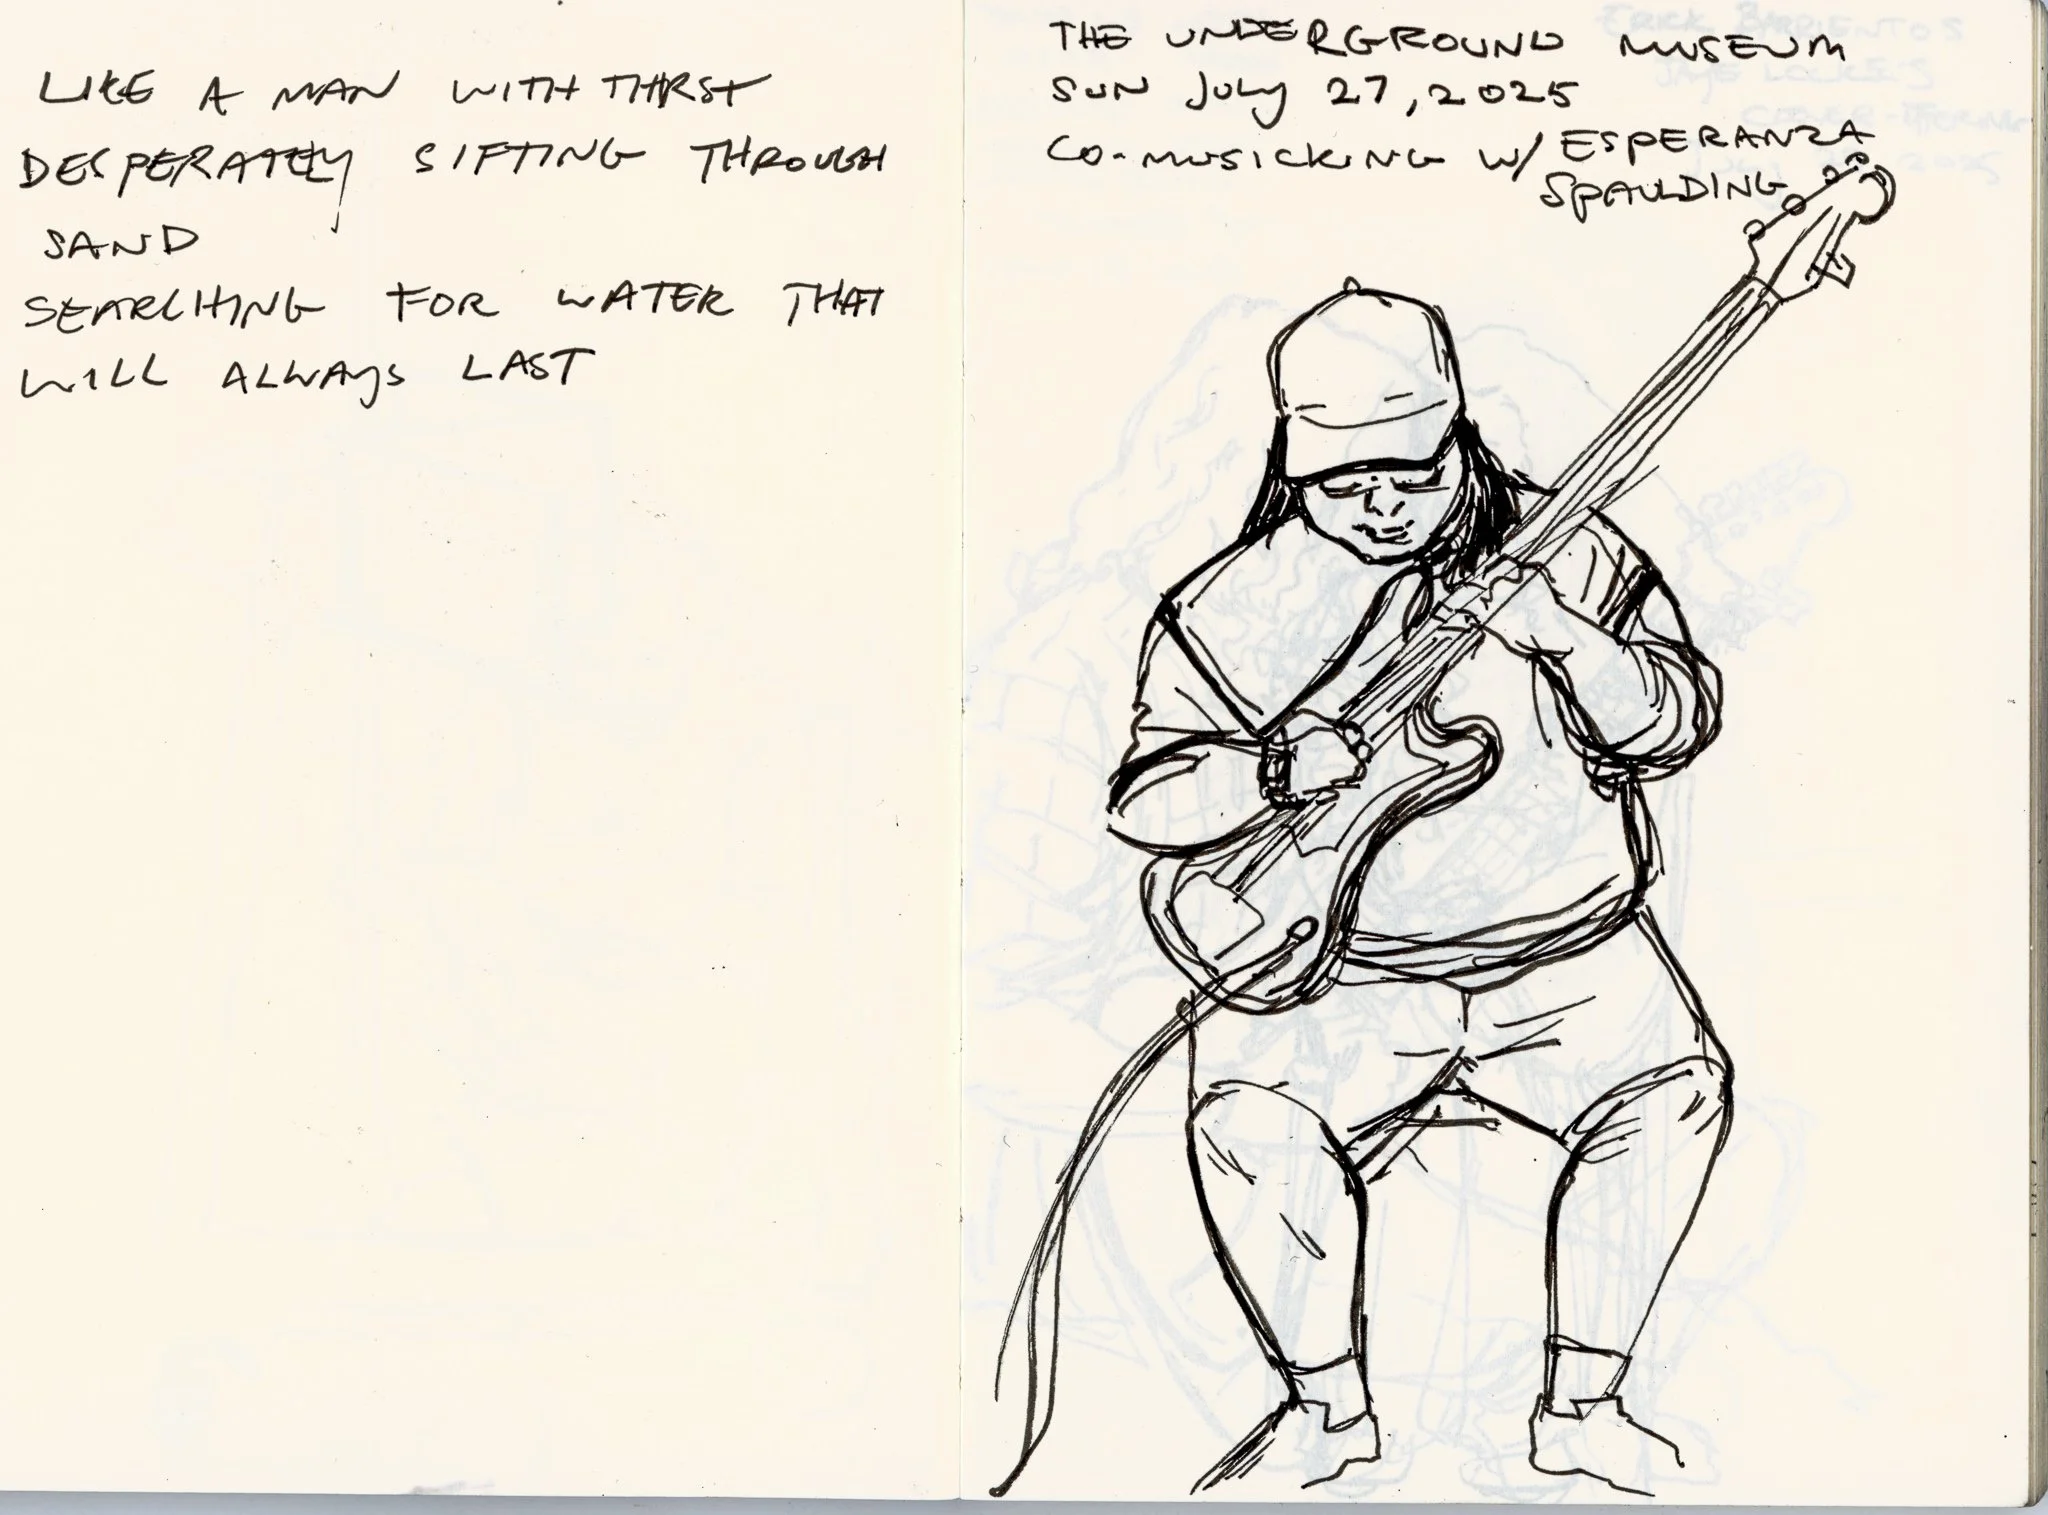 LIKE A MAN WITH THIRST
DESPERATELY SIFTING THROUGH
SAND
SEARCHING FOR WATER THAT
WILL ALWAYS LAST
THE UNDERGROUND MUSEUM
SUN July 27, 2025
CO-MUSICKING W/ ESPERANZA
SPAULDING
ERICK BARRIENTOS